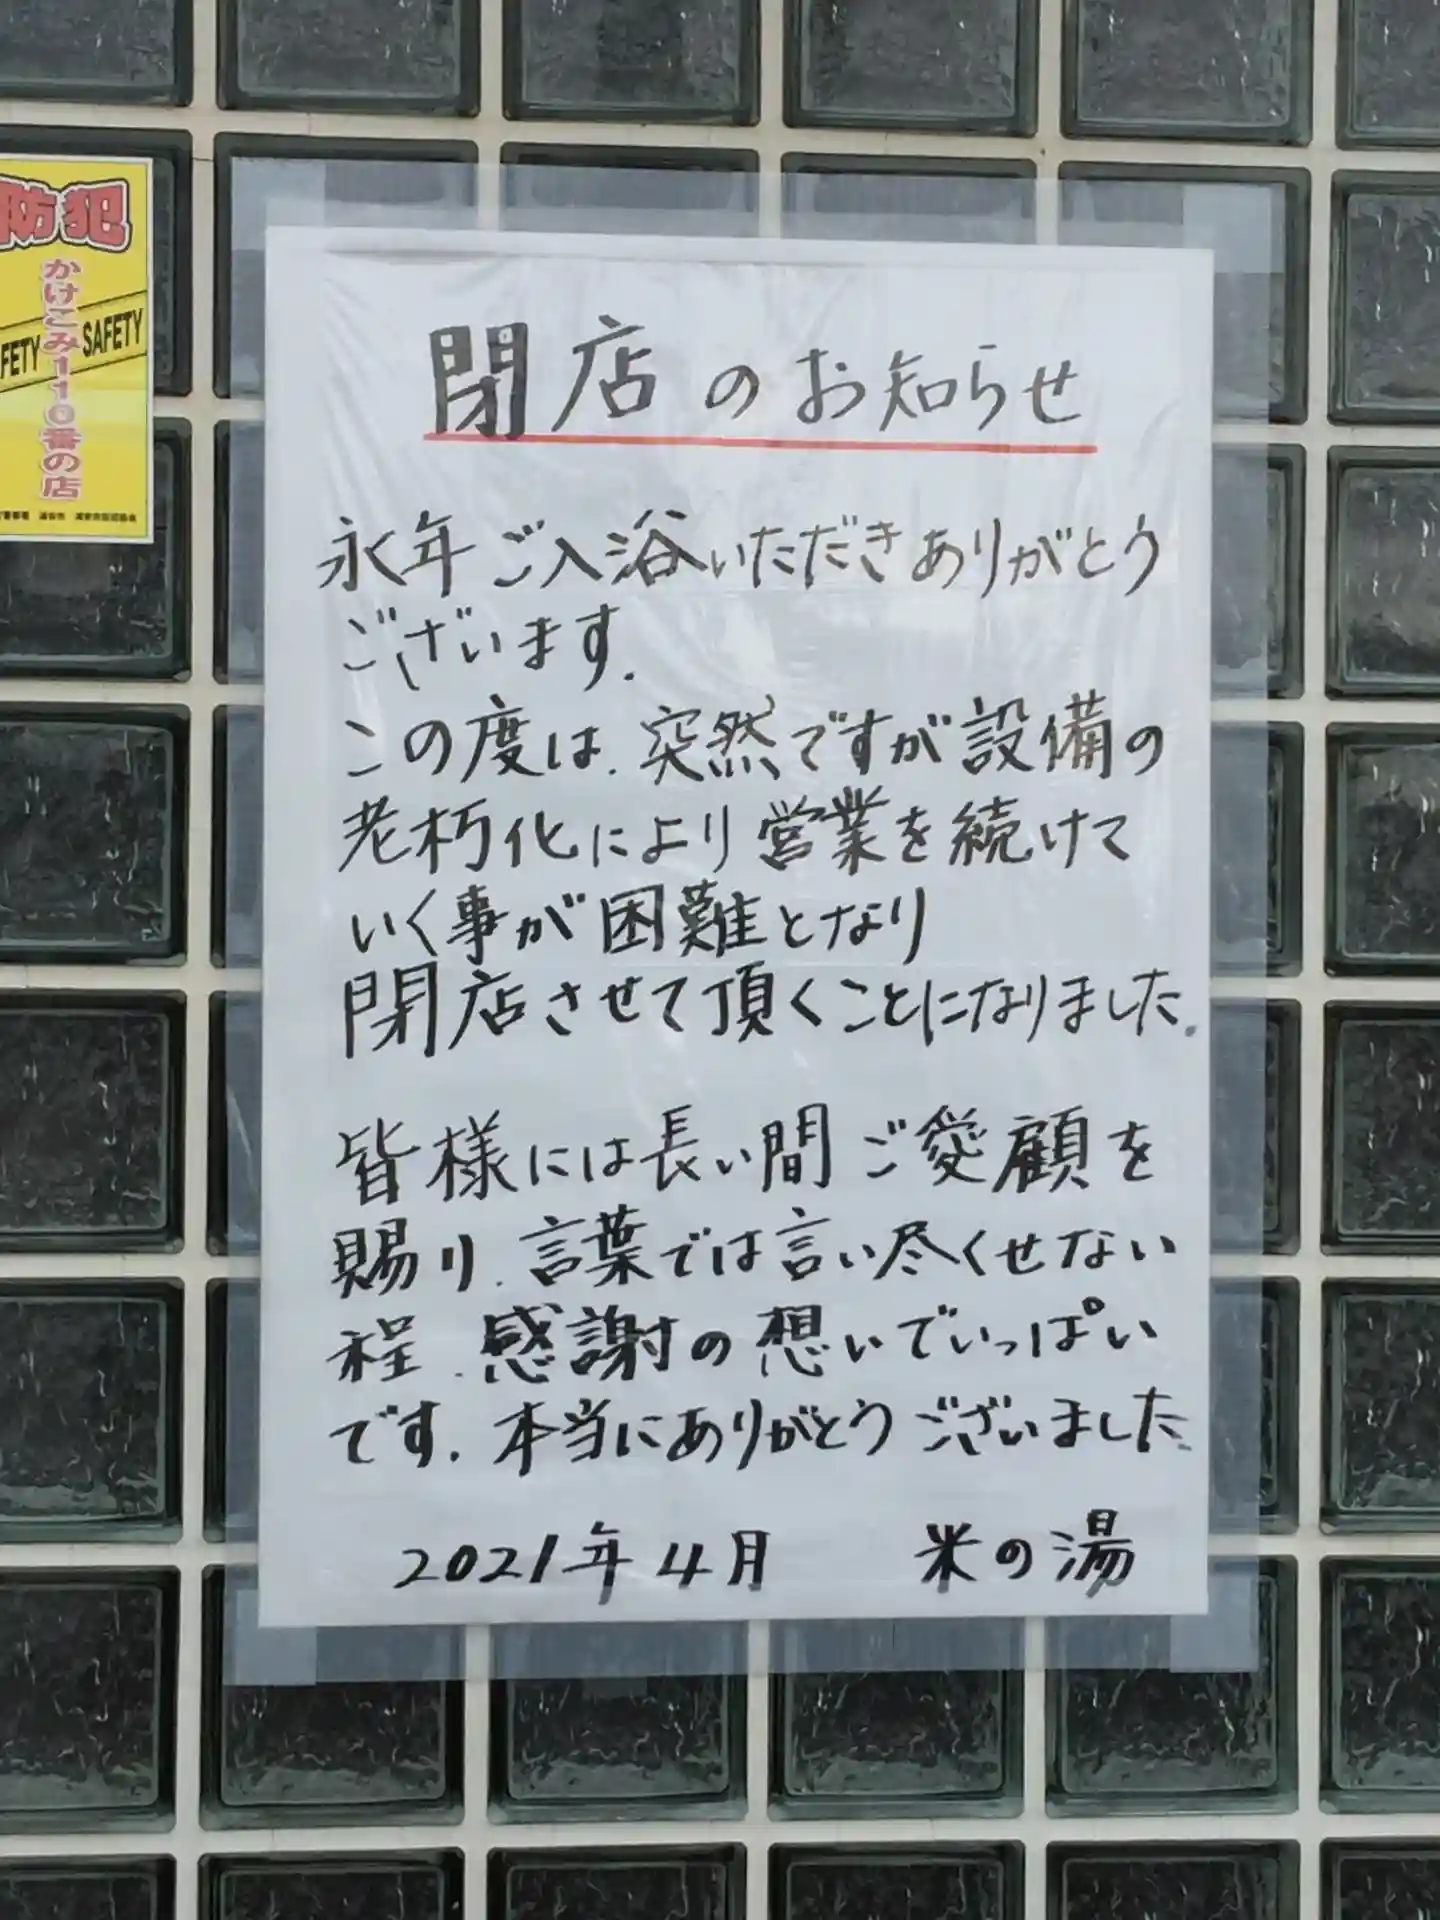 防犯
かけこみ110番の店
FETY SAFETY
閉店のお知らせ
永年ご入浴いただきありがとう
ございます.
この度は、突然ですが設備の
老朽化により営業を続けて
いく事が困難となり
閉店させて頂くことになりました.
皆様には長い間ご愛顧を
賜り、言葉では言い尽くせない
程、感謝の想いでいっぱい
です. 本当にありがとうございました.
2021年4月 米の湯